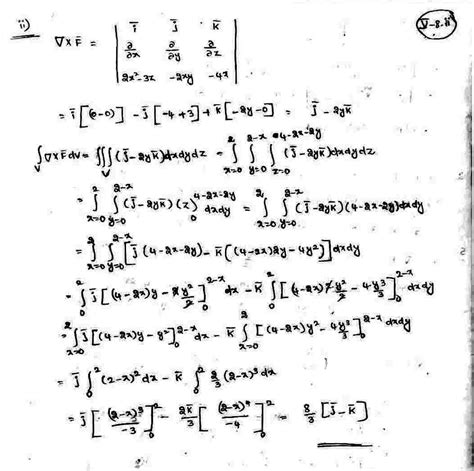 ii) V-8.ii
∇×F̄ = | ī j̄ k̄ |
| ∂/∂x ∂/∂y ∂/∂z |
| 2x²-3z -2xy -4x |
= ī[(0-0)] - j̄[-4+3] + k̄[-2y-0] = j̄ - 2yk̄
∫_V ∇×F̄ dv = ∭_V (j̄-2yk̄)dxdydz = ∫_{x=0}^{2} ∫_{y=0}^{2-x} ∫_{z=0}^{4-2x-2y} (j̄-2yk̄)dxdydz
= ∫_{x=0}^{2} ∫_{y=0}^{2-x} (j̄-2yk̄)(z)_0^{4-2x-2y} dxdy = ∫_{x=0}^{2} ∫_{y=0}^{2-x} (j̄-2yk̄)(4-2x-2y)dxdy
= ∫_{x=0}^{2} ∫_{y=0}^{2-x} [j̄(4-2x-2y) - k̄[(4-2x)2y-4y²]]dxdy
= ∫_0^2 j̄[(4-2x)y - 2y²/2]_0^{2-x} dx - k̄ ∫_0^2 [(4-2x)2y²/2 - 4y³/3]_0^{2-x} dxdy
= ∫_{x=0}^{2} j̄[(4-2x)y - y²]_0^{2-x} dx - k̄ ∫_{x=0}^{2} [(4-2x)y² - 4y³/3]_0^{2-x} dxdy
= j̄ ∫_0^2 (2-x)² dx - k̄ ∫_0^2 2/3 (2-x)³ dx
= j̄[(2-x)³/-3]_0^2 - 2k̄/3 [(2-x)⁴/-4]_0^2 = 8/3 [j̄-k̄]